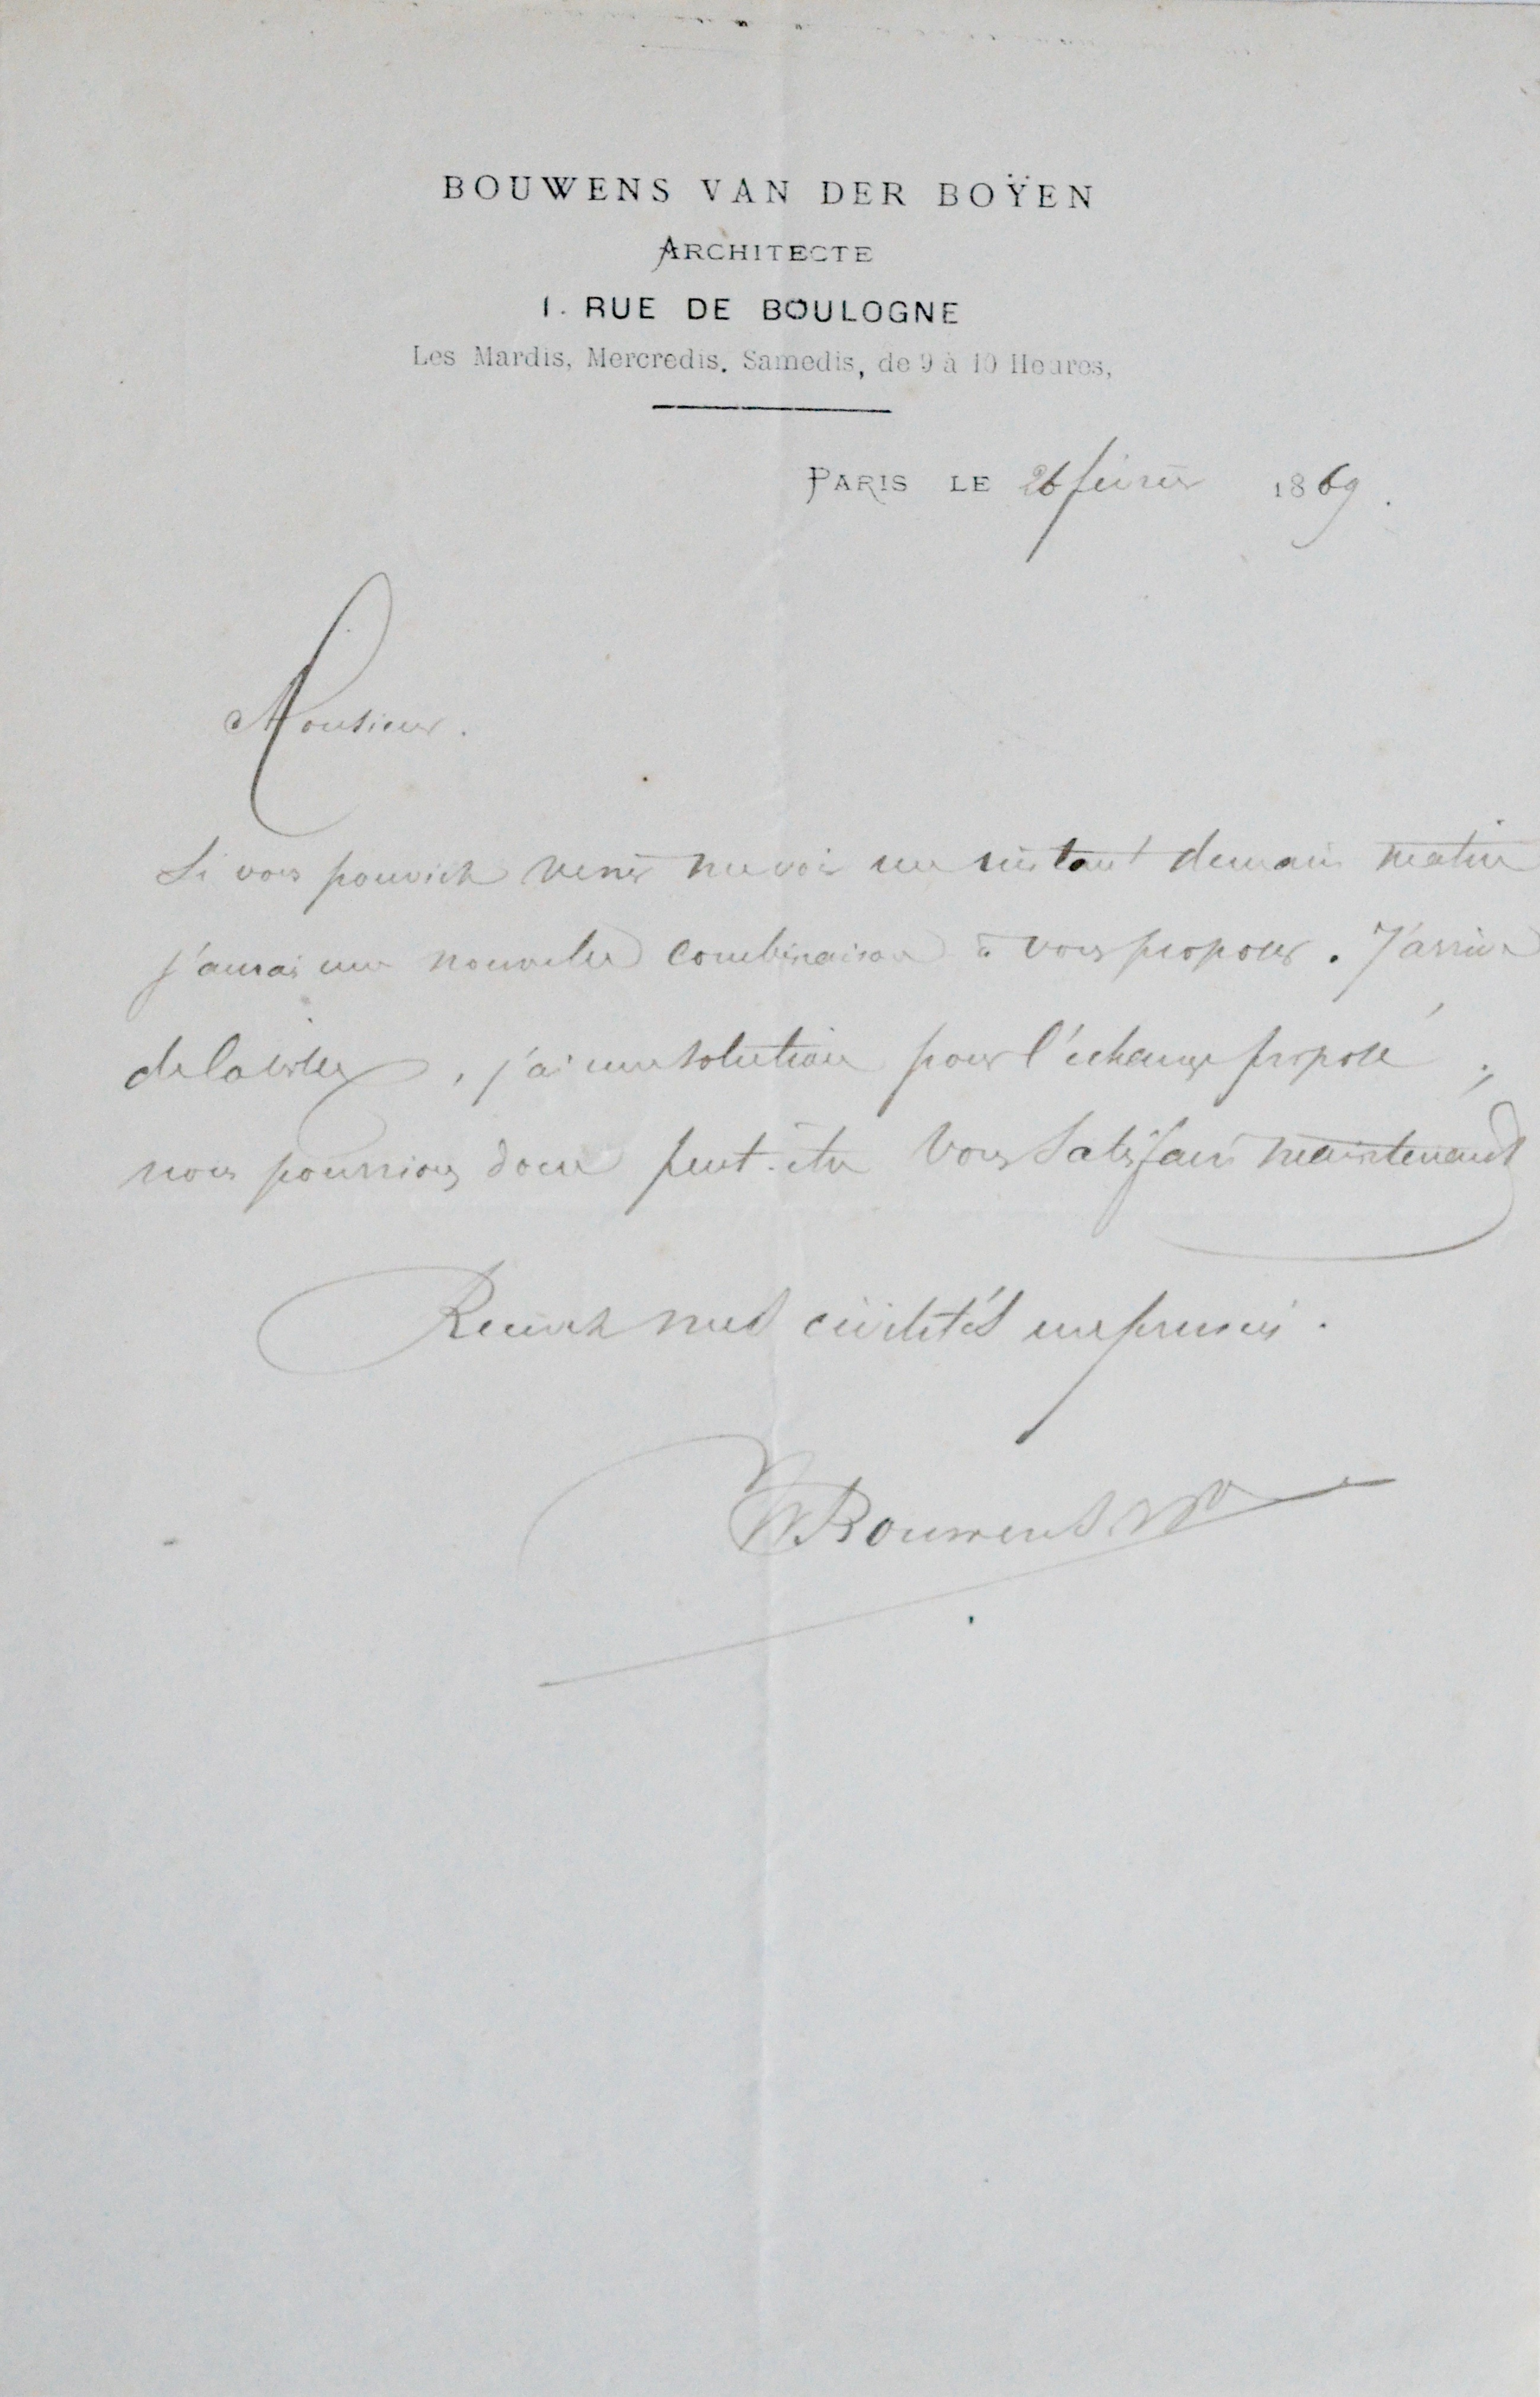 BOUWENS VAN DER BOŸEN
ARCHITECTE
1. RUE DE BOULOGNE
Les Mardis, Mercredis. Samedis, de 9 à 10 Heures,
PARIS LE 26 février 1869.
Monsieur.
Si vous pouviez venir me voir un instant demain matin
j'aurai une nouvelle combinaison à vous proposer. J'arrive
de la ville, j'ai une solution pour l'échange proposé;
nous pourrions donc peut-être vous satisfaire maintenant
Recevez mes civilités empressées.
W Bouwens